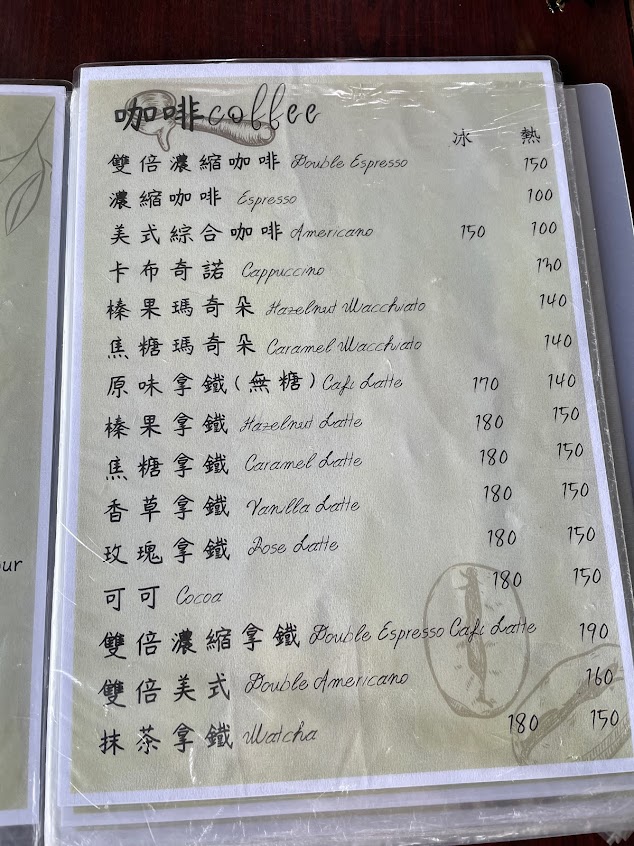 咖啡coffee
冰 熱
雙倍濃縮咖啡 Double Espresso 150
濃縮咖啡 Espresso 100
美式綜合咖啡 Americano 150 100
卡布奇諾 Cappuccino 130
榛果瑪奇朵 Hazelnut Macchiato 140
焦糖瑪奇朵 Caramel Macchiato 140
原味拿鐵(無糖) Cafe Latte 170 140
榛果拿鐵 Hazelnut Latte 180 150
焦糖拿鐵 Caramel Latte 180 150
香草拿鐵 Vanilla Latte 180 150
玫瑰拿鐵 Rose Latte 180 150
可可 Cocoa 180 150
雙倍濃縮拿鐵 Double Espresso Cafe Latte 190
雙倍美式 Double Americano 160
抹茶拿鐵 Matcha 180 150